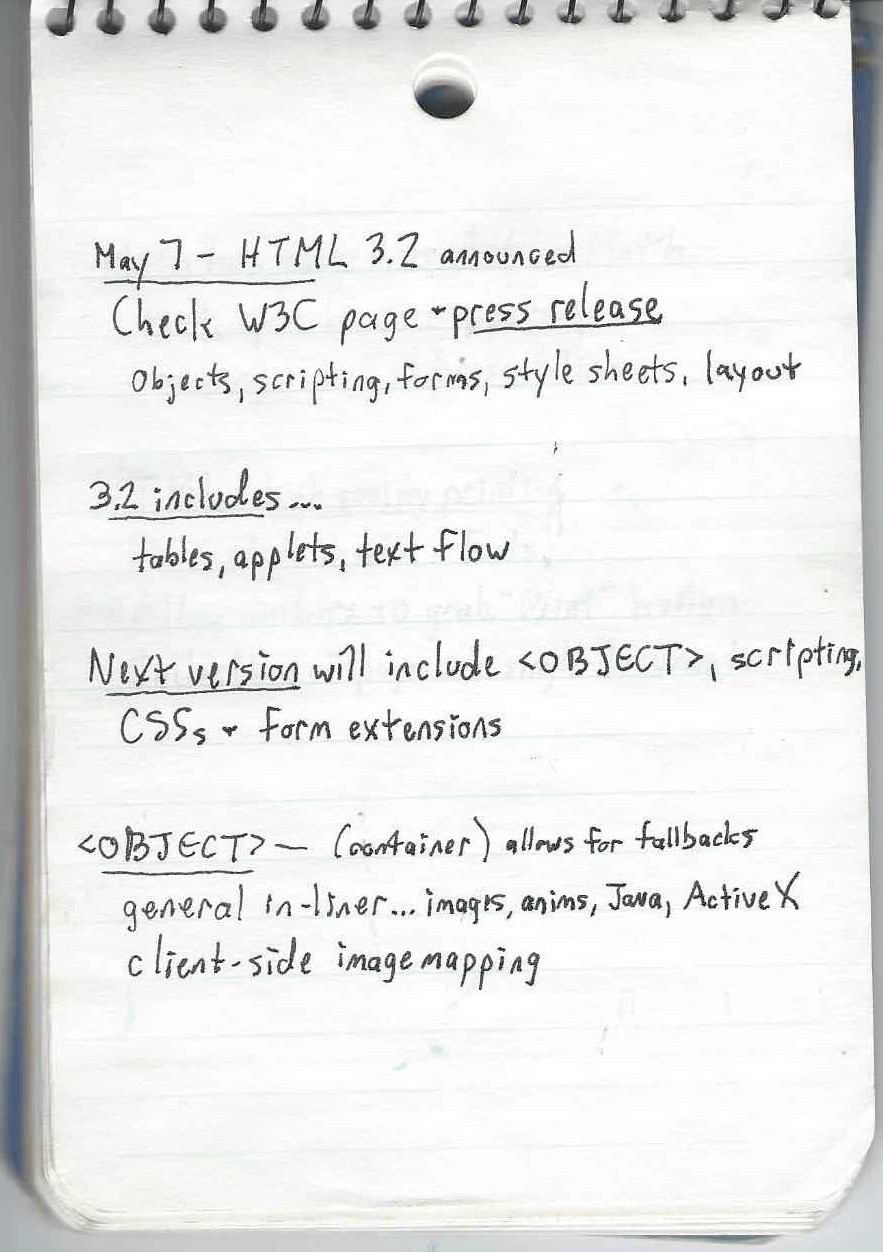 May 7 - HTML 3.2 announced
Check W3C page - press release
Objects, scripting, forms, style sheets, layout
3.2 includes...
tables, applets, text flow
Next version will include <OBJECT>, scripting,
CSSs + form extensions
<OBJECT> — (container) allows for fallbacks
general in-liner... images, anims, Java, ActiveX
client-side image mapping